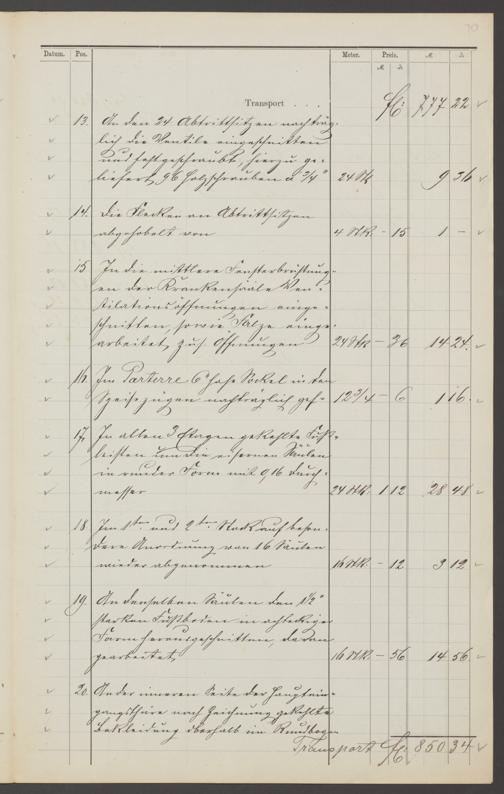 70
Datum. Pos. Meter. Preis. M ₰
M ₰
Transport . . . . fl: 777 22
13. An den 24 Abtrittsitzen nachträg-
lich die Ventile eingeschnitten
und festgeschraubt, hierzu ge-
liefert 96 Holzschrauben à 3/4" 24 Stk 9 36
14. Die Flecken an Abtrittsitzen
abgehobelt von 4 Stk. – 15 1 –
15 In die mittlere Fensterbrüstung-
en der Krankensäle Ven-
tilationsöffnungen einge-
schnitten, sowie Falze einge-
arbeitet, zus. Öffnungen 24 Stk – 36 14 24.
16. Im Parterre 6" hohe Sockel in den
nachträglich gef– 12 3/4 – 6 1 16.
17. In allen 3 Etagen gekehlte Fuß-
leisten um die eisernen Säulen
in runder Form mit 9/16 Durch-
messer 24 Stk. 1 12 28 48
18 Im 1ten und 2ten Stock auf beson-
dere Anordnung von 16 Säulen
wieder abgenommen 16 Stk. – 12 3 12
19. An denselben Säulen den 1 1/2"
starken Fußboden in achteckiger
Form herausgeschnitten, daran
gearbeitet, 16 Stk. – 56 14 56.
20. An der inneren Seite der Hauptein-
gangsthüre nach Zeichnung gekehlte
Bekleidung oberhalb im Rundbogen
Transport fl: 850 34